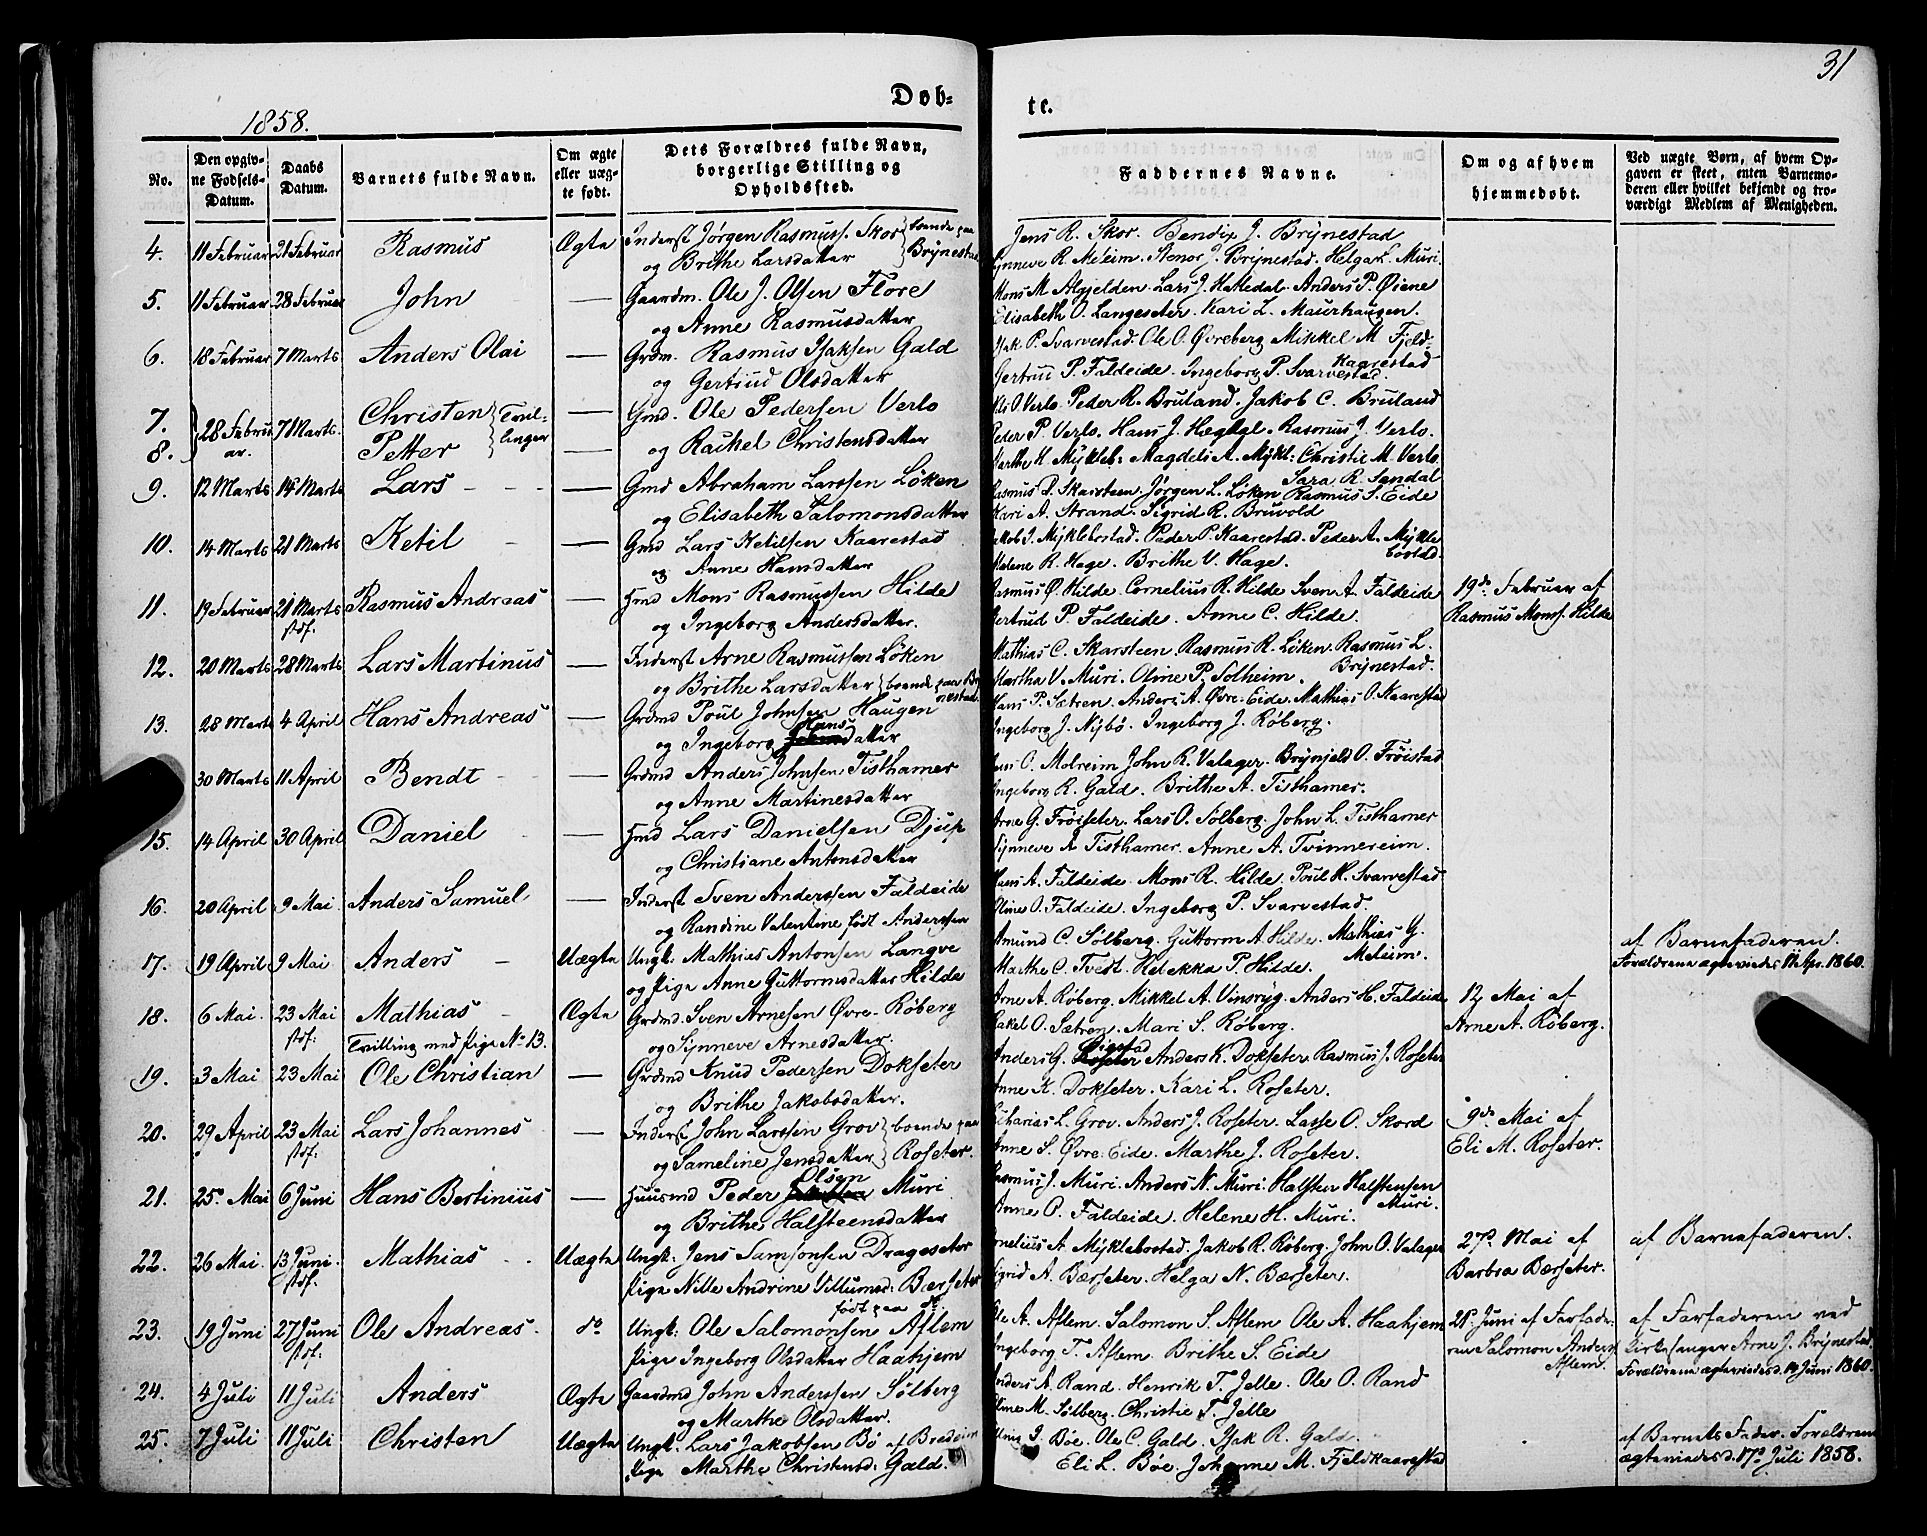 31
1858.
Døb-
te.
No.
Den opgiv-
ne Fødsels-
Datum.
Daabs
Datum.
Barnets fulde Navn.
Om ægte
eller uæg-
te født.
Dets Forældres fulde Navn,
borgerlige Stilling og
Opholdssted.
Faddernes Navne.
Om og af hvem
hjemmedøbt.
Ved uægte Børn, af hvem Op-
gaven er skeet, enten Barnemo-
deren eller hvilket bekjendt og tro-
værdigt Medlem af Menigheden.
4. 11 Februar 21 Februar Rasmus Ægte Inderst Jørgen Rasmuss. Skor boende paa
og Brithe Larsdatter Brynestad
Jens R. Skor. Bendix J. Brynestad
Synneve R. Meleim. Stenor J. Brynestad. Helga L. Muri.
5. 11 Februar 28 Februar John — Gaardm. Ole J. Olsen Flore
og Anne Rasmusdatter
Mons M. Algjelden. Lars J. Hattedal. Anders P. Øiene
Elisabeth O. Langeseter. Kari L. Maurhaugen.
6. 18 Februar 7 Marts Anders Olai — Grdm. Rasmus Isaksen Gald
og Gertrud Olsdatter
Isak P. Svarvestad. Ole O. Øvreberg Mikkel M. Fjeld-
Kaarestad
Gertrud P. Faldeide. Ingeborg P. Svarvestad
7. 28 Febru 7 Marts. Christen Tvil- — Gmd. Ole Pedersen Verlo
8. ar. Petter linger — og Rachel Christensdatter
Ols O. Verlo. Peder R. Bruland. Jakob C. Bruland
Peder P. Verlo. Hans J. Hegtegl. Rasmus J. Verlo.
Marthe H. Mykleb: Magdeli A. Mykl: Christie M. Verlo
Sara R. Sandal
9. 12 Marts 14 Marts Lars — Gmd Abraham Larssen Løken
og Elisabeth Salomonsdatter
Rasmus D. Skarsteen Jørgen L. Løken Rasmus S. Eide
Kari A. Strand. Sigrid R. Bruvold
10. 14 Marts 21 Marts Ketil — Gmd Lars Ketilsen Kaarestad
og Anne Hansdatter
Jakob J. Myklebostad. Peder P. Kaarestad. Peder A. Mykle
bostad.
Helene R. Hage. Brithe V. Hage.
11. 19 Februar 21 Marts Rasmus Andreas — Hmd Mons Rasmussen Hilde
stdf. og Ingeborg Andersdatter.
Rasmus Ø. Hilde. Cornelius R. Hilde Sven A. Faldeide
Gertrud P. Faldeide. Anne C. Hilde.
19de Februar af
Rasmus Monss. Hilde
12. 20 Marts 28 Marts Lars Martinus — Inderst Arne Rasmussen Løken
og Brithe Larsdatter boende paa Bry
nestad
Mathias C. Skarsteen Rasmus R. Løken. Rasmus L.
Brynestad.
Martha V. Muri. Oline P. Solheim.
13. 28 Marts 4 April Hans Andreas — Grdmd Poul Johnsen Haugen
Hans
og Ingeborg Johnsdatter
Hans P. Sætren. Anders A. Øvre-Eide. Mathias O. Kaarestad
Ingeborg J. Nybø. Ingeborg J. Røberg.
30 Marts 11 April Bendt — Grdmd Anders Johnsen Tisthamer
og Anne Martinesdatter
O. Molreim John R. Valager. Brynjeld O. Frøistad
Ingeborg R. Gald. Brithe A. Tisthamer.
15. 14 April 30 April Daniel — Hmd Lars Danielsen Djup
og Christiane Antonsdatter
Arne G. Frøiseter. Lars O. Solberg. John L. Tisthamer
Synneve A. Tisthamer. Anne A. Tvinnereim.
16. 20 April 9 Mai. Anders Samuel — Inderst Sven Anderssen Faldeide
og Randine Valentine født Anderssen
Hans A. Faldeide. Mons R. Hilde. Poul H. Svarvestad
Oline O. Faldeide. Ingeborg P. Svarvestad.
17. 19 April 9 Mai Anders — Uægte Ungk: Mathias Antonsen Langve
og Pige Anne Guttormsdatter Hilde
Amund C. Solberg. Guttorm A. Hilde. Mathias G.
Meleim.
Marthe C. Tvedt. Rebekka P. Hilde.
af Barnefaderen.
Forældrene ægteviedes 11 Apr. 1860.
18. 6 Mai. 23 Mai Mathias — Ægte Grdmd. Sven Arnesen Øvre-Røberg
stdf: Tvilling med Pige No 13. og Synneve Arnesdatter.
Arne A. Røberg. Mikkel A. Vinsryg. Anders H. Faldeide
Rakel O. Sætren. Mari S. Røberg.
12 Mai af
Arne A. Røberg.
19. 3 Mai 23 Mai Ole Christian — Grdmd Knud Pedersen Dokseter
og Brithe Jakobsdatter.
Anders G. Roseter Anders K. Dokseter Rasmus J. Roseter
Anne K. Dokseter. Kari L. Roseter.
20. 29 April 23 Mai Lars Johannes — Inderst John Larssen Grov boende paa
stdf: og Sameline Jensdatter Roseter.
Zacharias L. Grov. Anders J. Roseter. Lasse O. Skord
Anne S. Øvre-Eide. Marthe J. Roseter.
9de Mai af
Eli M. Roseter.
21. 25. Mai 6 Juni Hans Bertinius — Huusmd Peder Olsen Muri
og Brithe Halsteensdatter
Rasmus J. Muri. Anders N. Muri. Halsten Halstensen
Muri.
Anne P. Faldeide. Helene H. Muri.
22. 26 Mai. 13 Juni. Mathias Uægte Ungk: Jens Samsonsen Drageseter
stdf: Pige Nille Andrine Villumsd: Bærseter
født paa do
Cornelius A. Myklebostad. Jakob R. Røberg. John O. Valager
Sigrid A. Bærseter. Helga N. Bærseter.
27de Mai af
Barbra Bærseter.
af Barnefaderen.
23. 19 Juni 27 Juni Ole Andreas. do Ungk: Ole Salomonsen Aflem
stdf: Pige Ingeborg Olsdatter Haahjem
Ole A. Aflem. Salomon S. Aflem Ole A. Haahjem
Ingeborg T. Aflem. Brithe S. Eide
21. Juni af Farfade-
ren Salomon Anders
Aflem.
af Farfaderen ved
Kirkesanger Arne J. Brynestad.
Forældrene ægteviedes d. 14 Juni 1860.
24. 4 Juli 11 Juli Anders Ægte Gaardmd John Anderssen Sølberg
og Marthe Olsdatter.
Anders A. Rand. Henrik T. Jelle. Ole O. Rand
Oline M. Sølberg. Christie T. Jelle
25. 7 Juli 11 Juli Christen Uægte Ungk: Lars Jakobsen Bø af Bredeim
Pige Marthe Christensd. Gald.
J. Bøe. Ole C. Gald. Isak R. Gald.
Eli L. Bøe. Johanne M. Fjeldkaarestad
af Barnets Fader. Forældrene
ægteviedes d. 17de Juli 1858.